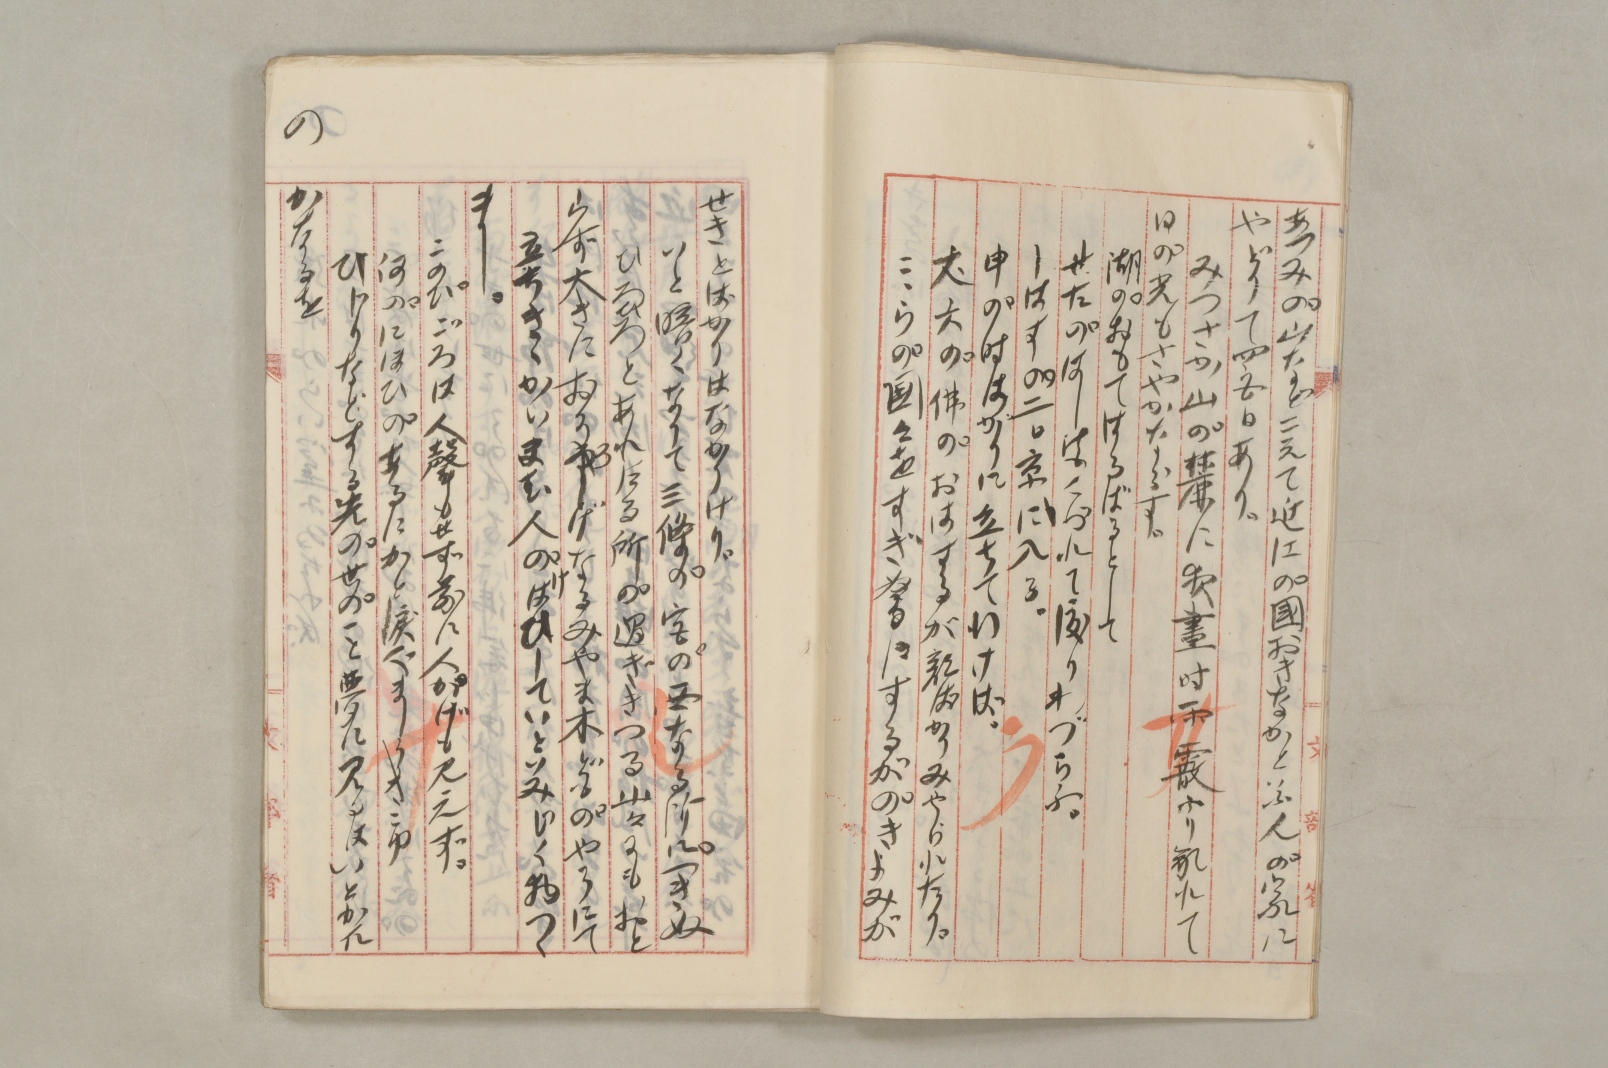 あつみの山などこえて近江の國おきながと云人の家に
やどりて四五日あり。
みつさか山の麓に夜晝時雨霰ふり乱れて
日の光もさやかならず。
湖のおもてはるばるとして
せたのはし皆くづれて渡りわづらふ。
しはすの二日京に入る。
申の時ばかりに立ちて行けば。
丈六の佛のおはするが顔ばかりみやられたり。
こゝらの國々をすぎぬるにするがのきよみが
せきとばかりはなかりけり。
いと暗くなりて三條の宮の西なる所につきぬ
ひろ〴〵とあれたる所の過ぎきつる山々にもおと
らず大きにおそろしげなるみやま木どものやうにて
立ちきくかいまむ人のけはひしていといみじく物つゝ
まし。
このひごろは人聲もせず前に人かげも見えず。
何のにほひのあるにかと涙ぐましうきこゆ
ひじりなどする先の世のこと夢に見るはいとかた
かなるを
の
文部省